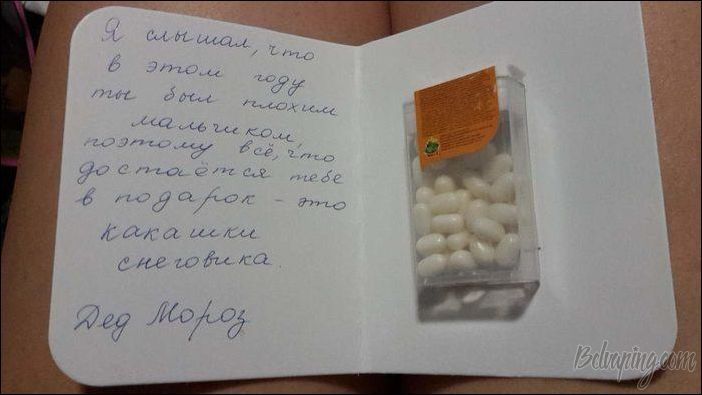 Я слышал, что
в этом году
ты был плохим
мальчиком,
поэтому всё, что
достаётся тебе
в подарок - это
какашки
снеговика.
Дед Мороз
Belvaping.com